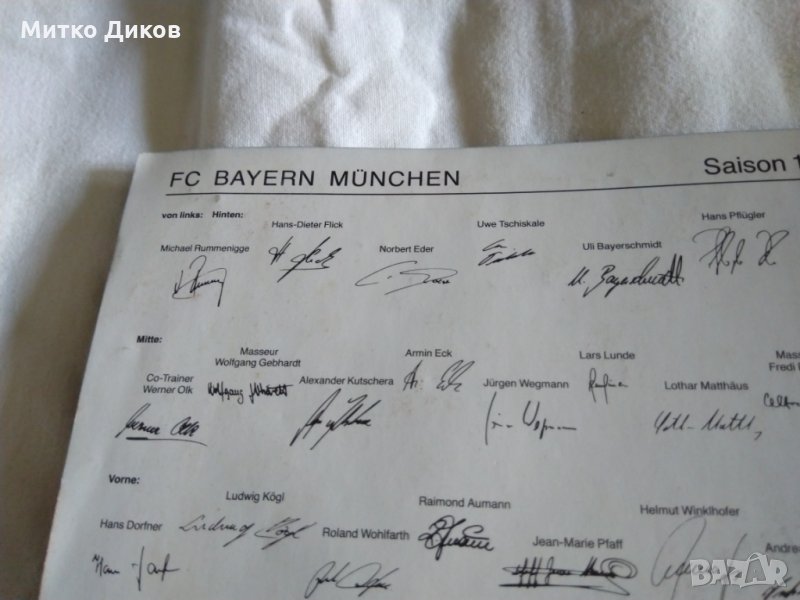 Митко Диков
FC BAYERN MÜNCHEN Saison 1
von links: Hinten: Hans-Dieter Flick Uwe Tschiskale Hans Pflügler
Michael Rummenigge Norbert Eder Uli Bayerschmidt
Mitte: Masseur Armin Eck Lars Lunde
Wolfgang Gebhardt
Co-Trainer Alexander Kutschera Jürgen Wegmann Lothar Matthäus Fredi
Werner Olk
Vorne: Ludwig Kögl Raimond Aumann Helmut Winklhofer
Hans Dorfner Roland Wohlfarth Jean-Marie Pfaff
bazar